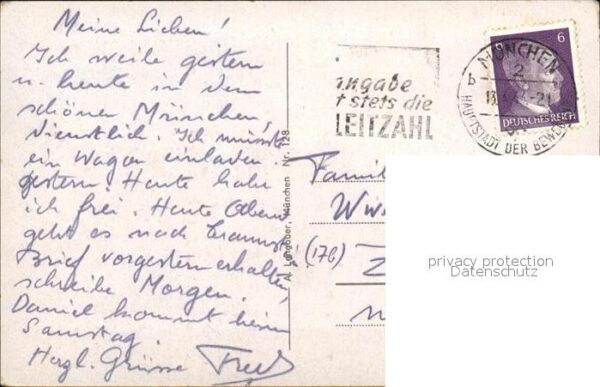 Meine Lieben!
Ich weile gestern
u. heute in dem
schönen München,
dienstlich. Ich musste
ein Wagon einladen
gestern. Heute habe
ich frei. Heute Abend
geht es nach
Brief vorgestern erhalten,
schreibe Morgen.
Daniel kommt
Samstag.
Herzl. Grüsse Fred
A. Lengauer, München Nr. 128
angabe
t stets die
LEITZAHL
MÜNCHEN
2
b
13
HAUPTSTADT DER BEWE
6
DEUTSCHES REICH
Famil
(17b)
privacy protection
Datenschutz